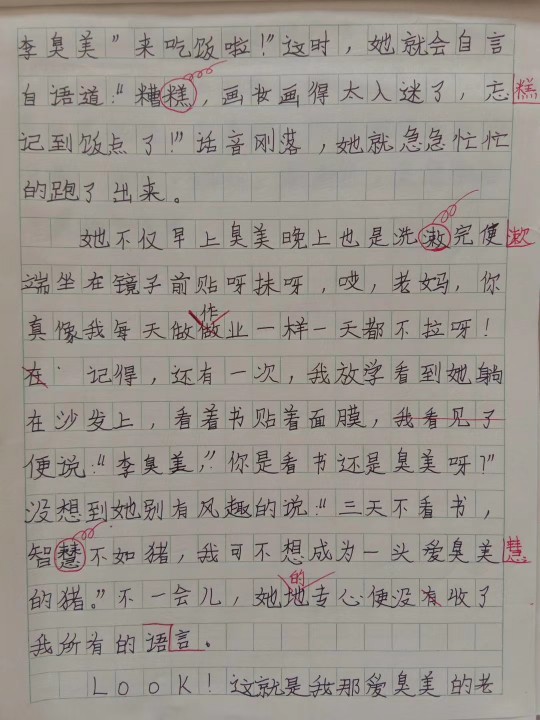 李臭美”来吃饭啦！”这时，她就会自言
自语道：“糟糕，画妆画得太入迷了，忘糕
记到饭点了！”话音刚落，她就急急忙忙
的跑了出来。
她不仅早上臭美晚上也是洗漱完便漱
端坐在镜子前贴呀抹呀，哎，老妈，你
作
真像我每天做做业一样一天都不拉呀！
在 记得，还有一次，我放学看到她躺
在沙发上，看着书贴着面膜，我看见了
便说：“李臭美，”你是看书还是臭美呀？”
没想到她别有风趣的说：“三天不看书，
智慧不如猪，我可不想成为一头爱臭美慧
的
的猪。”不一会儿，她地专心便没有收了
我所有的语言。
LOOK！这就是我那爱臭美的老